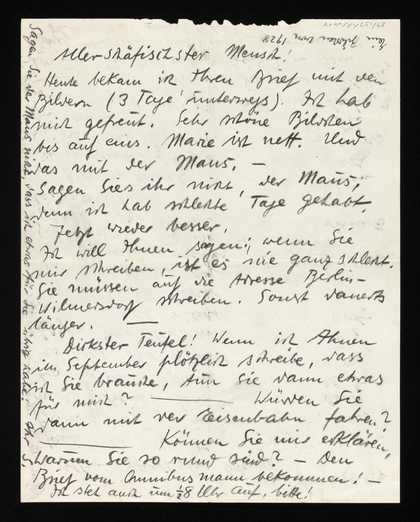 Allerschäfischster Mensch!
Heute bekam ich Ihren Brief mit den
Bildern (3 Tage unterwegs). Ich hab
mich gefreut. Sehr schöne Bildchen
bis auf eins. Marie ist nett. Und
das mit der Maus, —
Sagen Sies ihr nicht, der Maus,
denn ich hab schlechte Tage gehabt.
Jetzt wieder besser.
Ich will Ihnen sagen: wenn Sie
mir schreiben, ist es nie ganz schlecht.
Sie müssen auf die Adresse Berlin-
Wilmersdorf schreiben. Sonst dauerts
länger. —
Dickster Teufel! Wenn ich Ihnen
im September plötzlich schreibe, dass
ich Sie brauche, tun Sie dann etwas
für mich? — Würden Sie
dann mit der Eisenbahn fahren?
— Können Sie mir erklären,
warum Sie so rund sind? — Den
Brief vom Omnibusmann bekommen! —
Ich steh auch um ½8 Uhr auf, bitte!
Sagen Sie der Maus nicht, dass ich etwas für sie